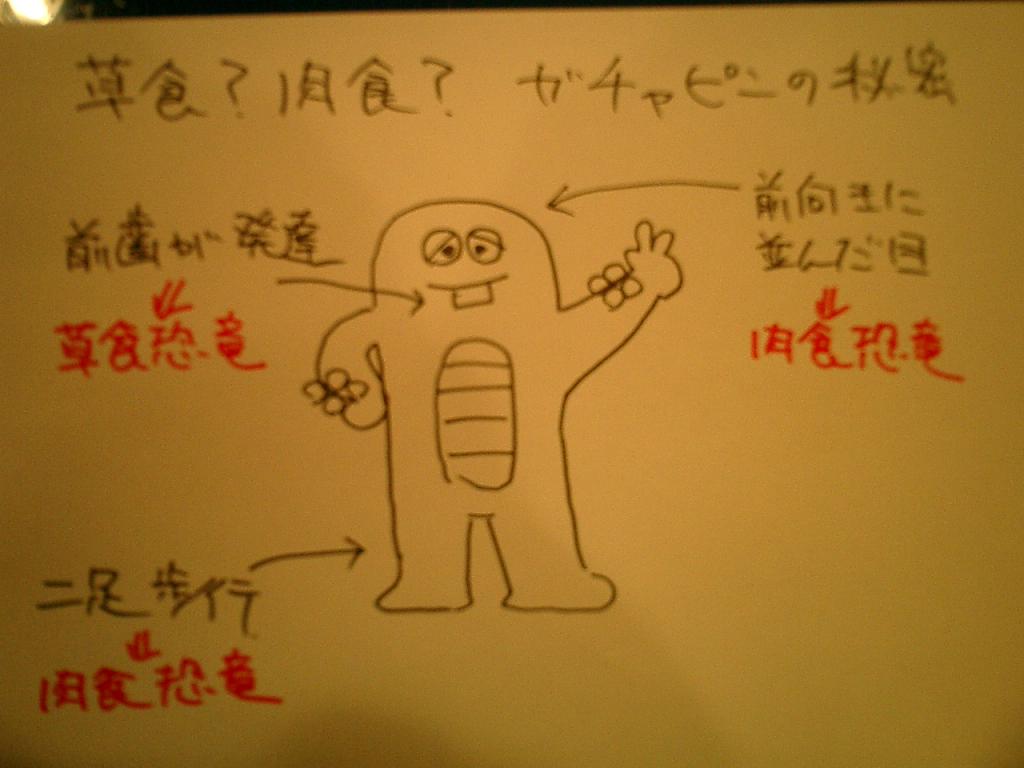 草食？肉食？ ガチャピンの秘密
前歯が発達
草食恐竜
前向きに
並んだ目
肉食恐竜
二足歩行
肉食恐竜